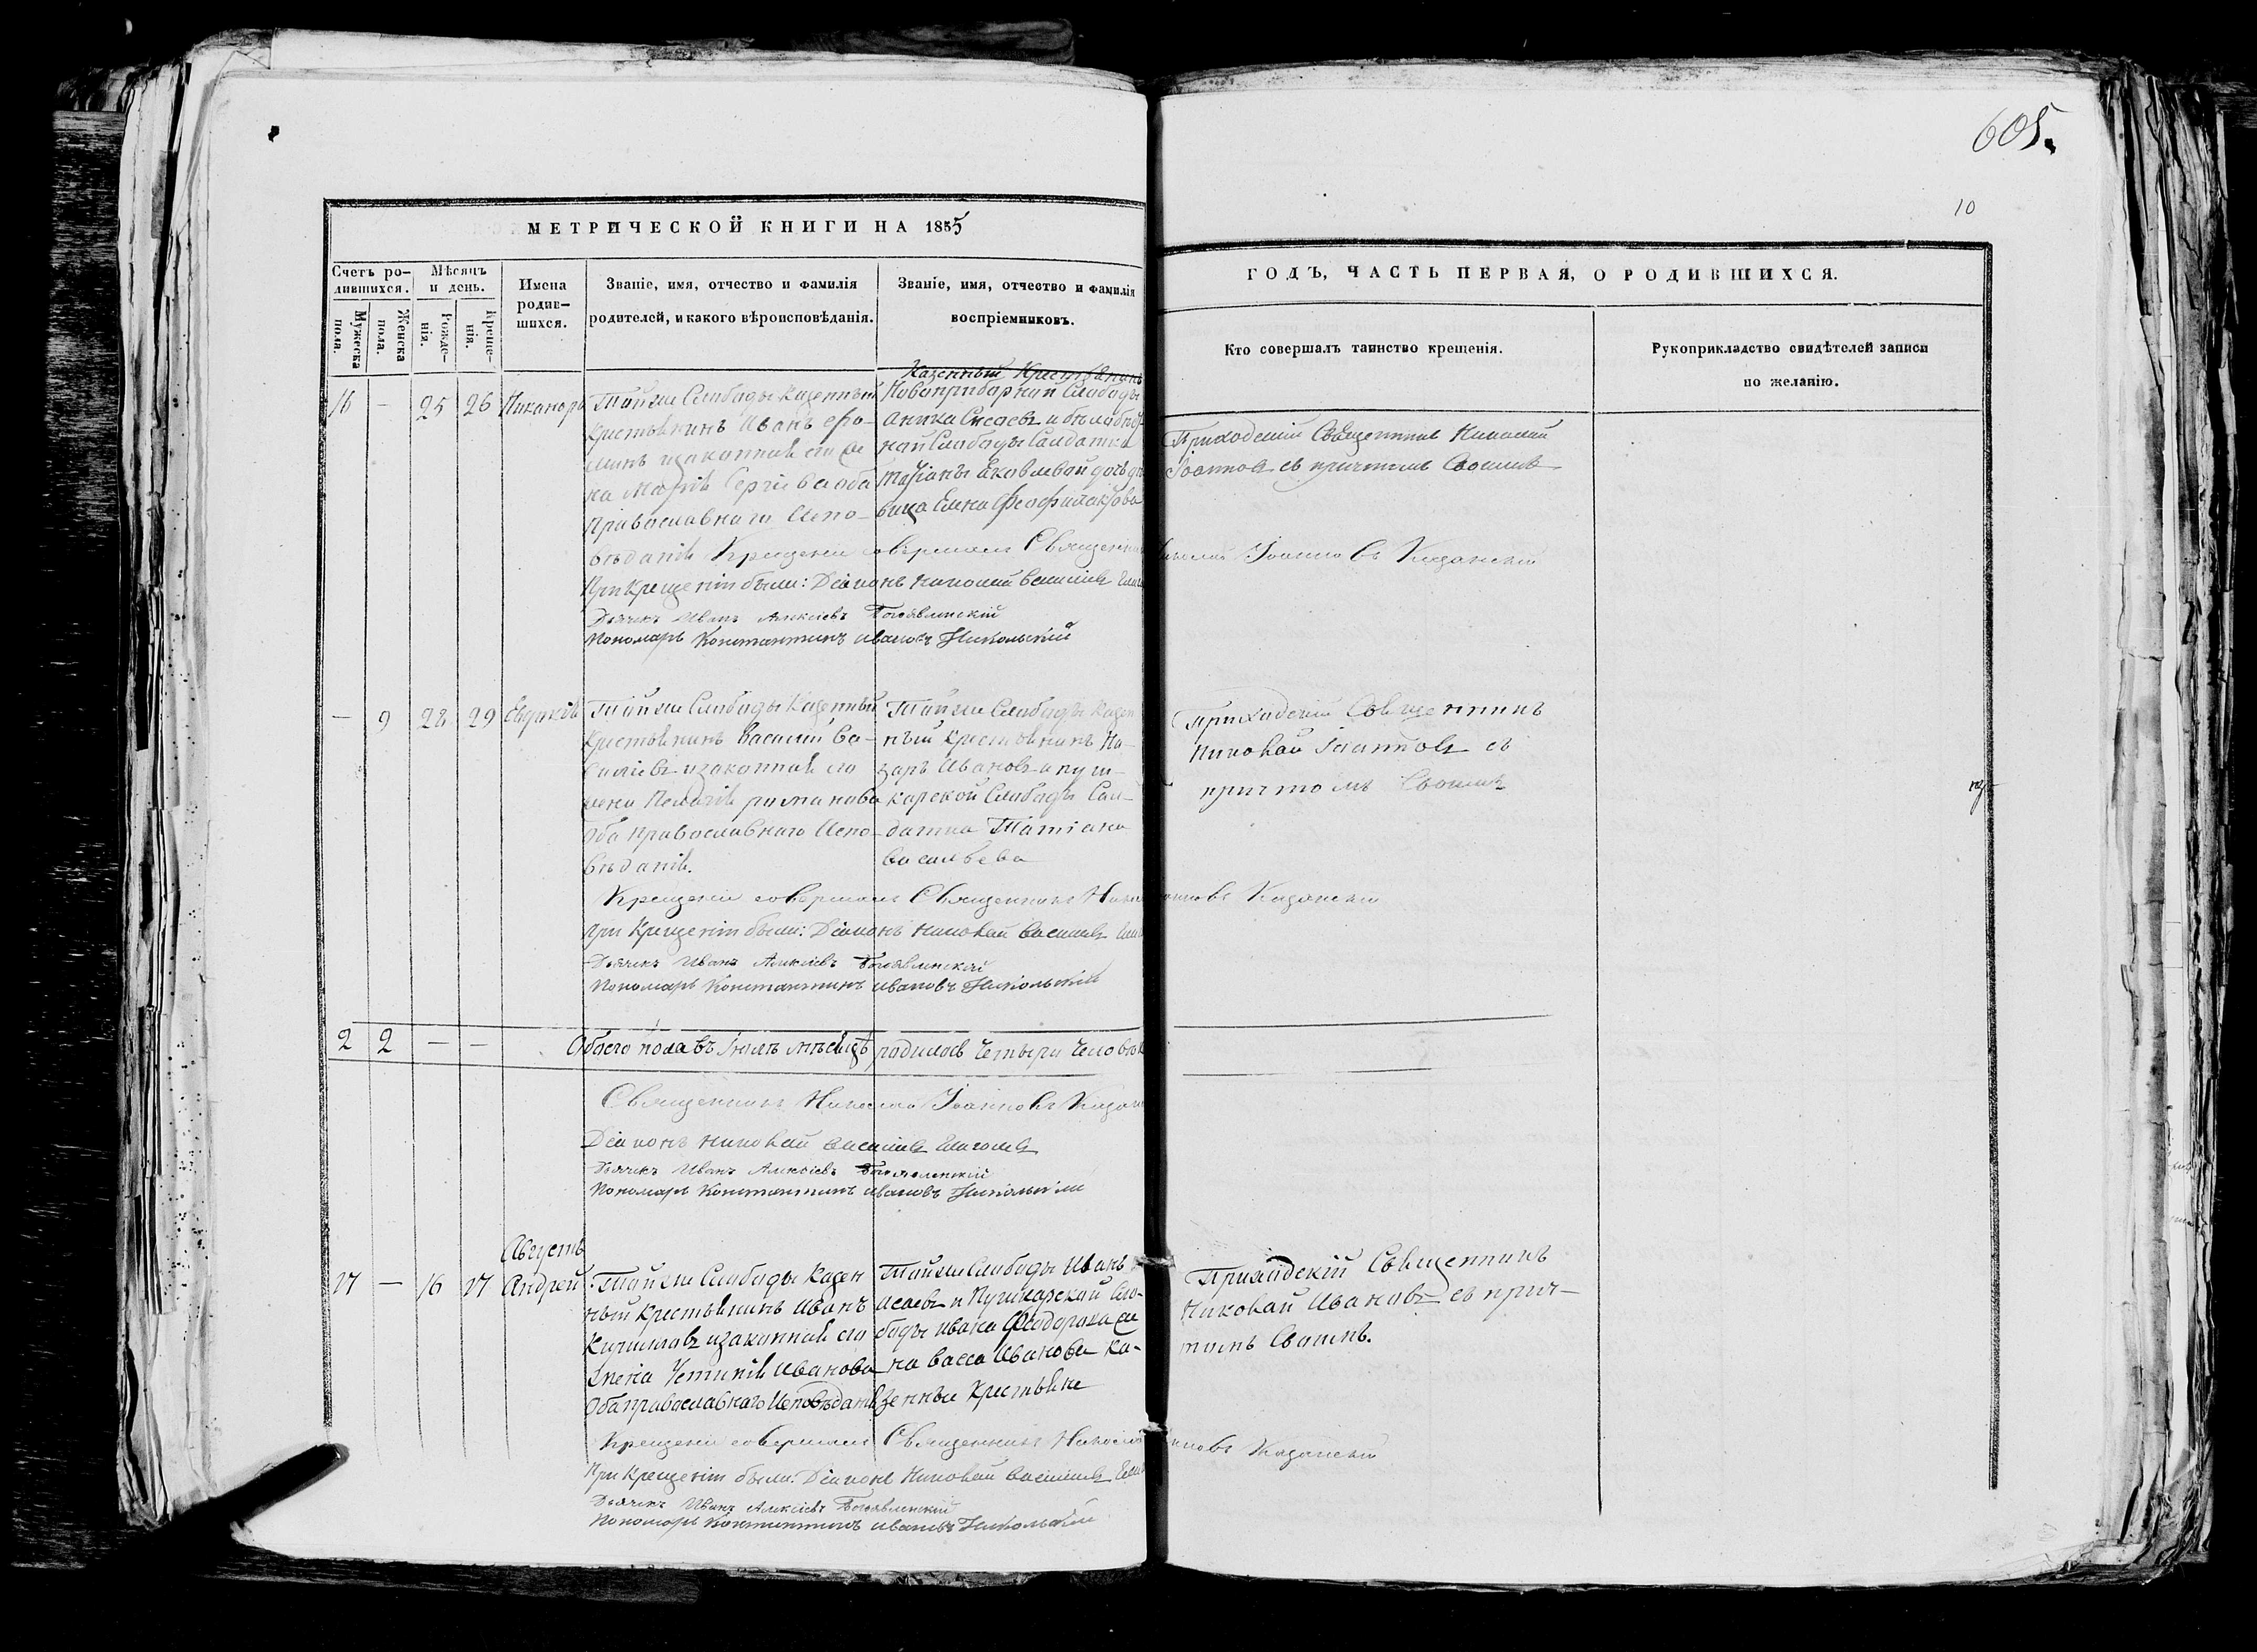 605.
10
МЕТРИЧЕСКОЙ КНИГИ НА 1855
ГОДЪ, ЧАСТЬ ПЕРВАЯ, О РОДИВШИХСЯ.
Счетъ ро-
дившихся.
Мужеска
пола.
Женска
пола.
Мѣсяцъ
и день.
Рожде-
нія.
Креще-
нія.
Имена
родив-
шихся.
Званіе, имя, отчество и фамилія
родителей, и какого вѣроисповѣданія.
Званіе, имя, отчество и фамилія
воспріемниковъ.
Кто совершалъ таинство крещенія.
Рукоприкладство свидѣтелей записи
по желанію.
16 — 25 26 Никаноръ
Тойже Слабады Казенный
Крестьянинъ Иванъ
изаконная его
на Марія Сергіева оба
Православнаго Испо-
вѣданія
Казенный Крестьянинъ
Новоприборной Слабоды
и
ной Слабоды Салдатки
Яковлевой дочь
вица Елена Феофилактова
Приходскій Священникъ Николай
Іоанновъ съ причтомъ Своимъ
Крещеніе совершалъ Священникъ Николай Іоанновъ Казанскій
При Крещеніи были: Діаконъ Николай Васильевъ
Дьячекъ Иванъ Алексіевъ Богоявленскій
Пономарь Константинъ Ивановъ Никольскій
— 9 28 29 Евдокія
Тойже Слабады Казенный
Крестьянинъ Василій Ва-
силіевъ изаконная его
жена Пелагія Романова
Оба православнаго Испо-
вѣданія.
Тойже Слабады Казен
ный Крестьянинъ На-
заръ Ивановъ и пуш-
карской Слабады Сал-
датка Татіана
Васильева
Приходскій Священникъ
Николай Іоанновъ съ
причтомъ Своимъ
Крещеніе совершалъ Священникъ Николай Іоанновъ Казанскій
При Крещеніи были: Діаконъ Николай Васильевъ
Дьячекъ Иванъ Алексіевъ Богоявленскій
Пономарь Константинъ Ивановъ Никольскій
2 2 — — Обоего пола въ Іюлѣ мѣсяцѣ родилось Четыре Человѣка
Священникъ Николай Іоанновъ Казанскій
Діаконъ Николай Васильевъ Глаголевъ
Дьячекъ Иванъ Алексіевъ Богоявленскій
Пономарь Константинъ Ивановъ Никольскій
Августъ
17 — 16 17 Андрей
Тойже Слабады Казен
ный Крестьянинъ Иванъ
Кириловъ изаконная его
Жена Устинія Иванова
Оба православнаго Исповѣданія
Тойже Слабады Иванъ
Исаевъ и Пушкарской Сло-
боды Ивана Феодорова же
на Васса Иванова Ка-
зенные Крестьяне
Приходскій Священникъ
Николай Ивановъ съ прич-
томъ Своимъ.
Крещеніе совершалъ Священникъ Николай Іоанновъ Казанскій
При Крещеніи были: Діаконъ Николай Васильевъ
Дьячекъ Иванъ Алексіевъ Богоявленскій
Пономарь Константинъ Ивановъ Никольскій